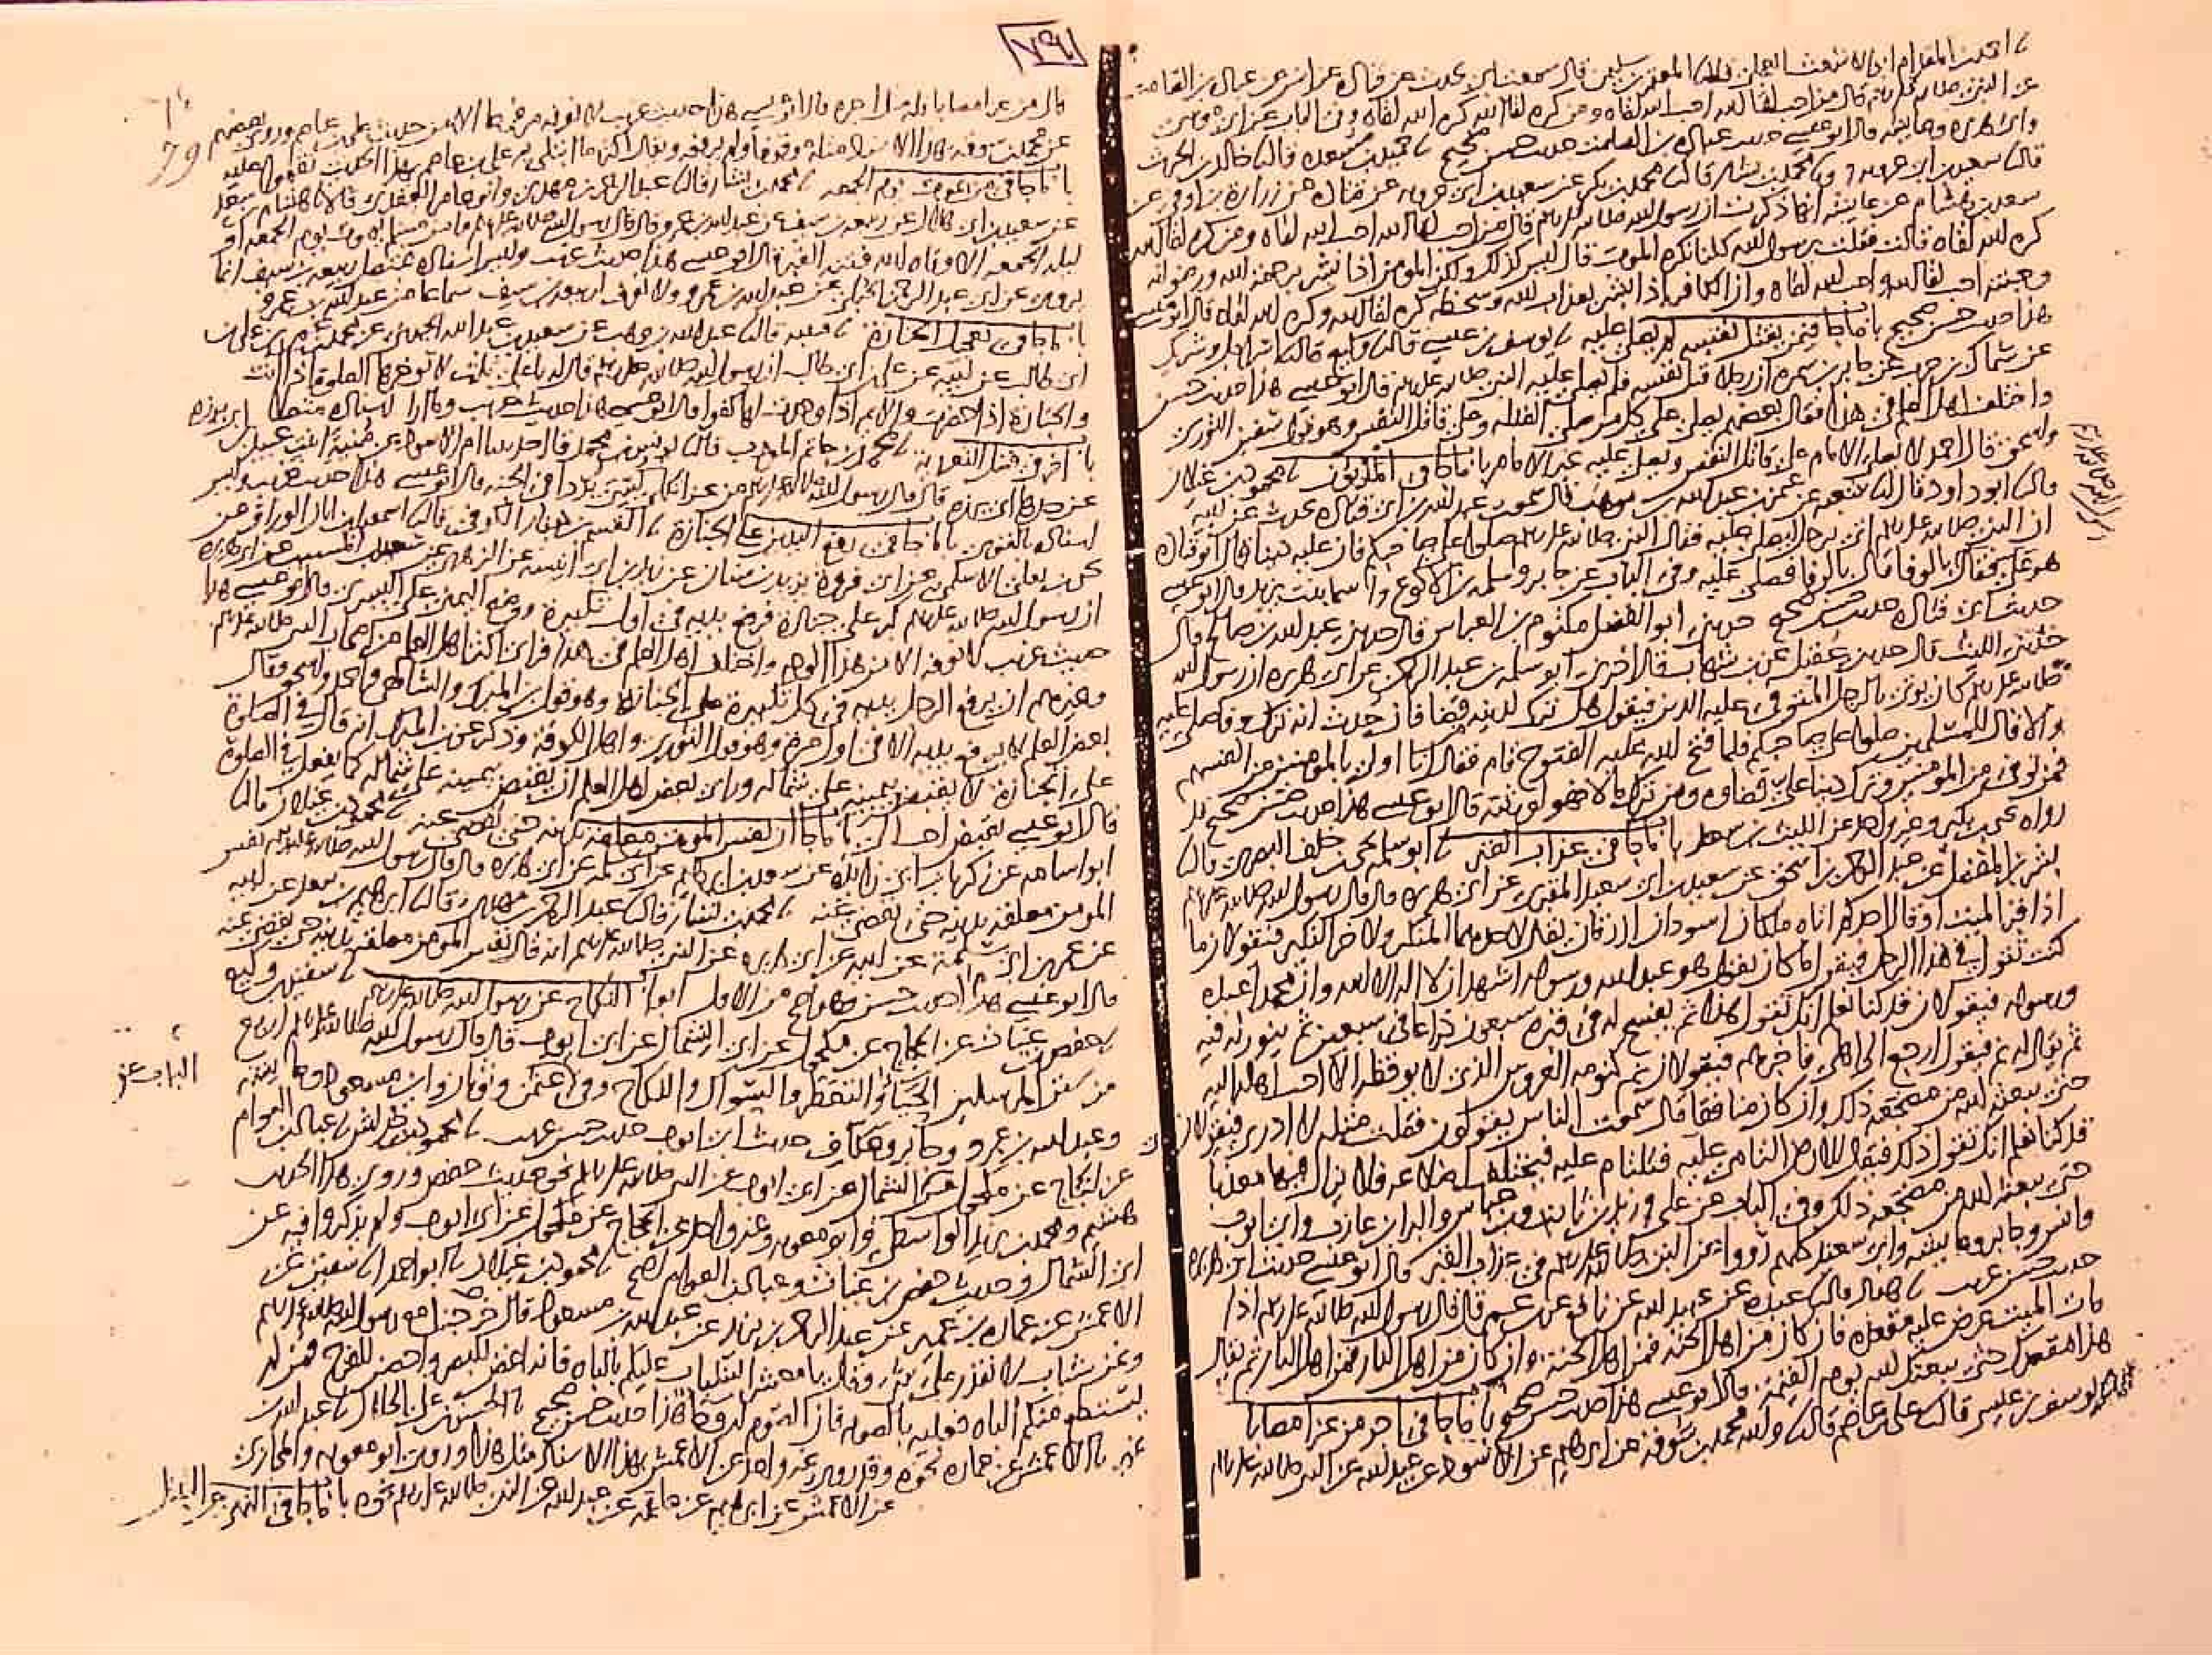 أحمد بن المقدام أبو الأشعث العجلي قال نا المعتمر بن سليمن قال سمعت أبي يحدث عن قتادة عن أنس عن عبادة بن الصامت
عن النبي صلى الله عليه وسلم قال من أحب لقا الله أحب الله لقاه ومن كره لقا الله كره الله لقاه وفي الباب عن أبي موسى
وأبي هريرة وعايشة قال أبو عيسى حديث عبادة بن الصامت حديث حسن صحيح نا حميد بن مسعدة قال نا خالد بن الحرث
قال نا سعيد بن أبي عروبة ونا محمد بن بشار قال نا محمد بن بكر عن سعيد بن أبي عروبة عن قتادة عن زرارة بن أوفى عن
سعد بن هشام عن عايشة أنها ذكرت أن رسول الله صلى الله عليه وسلم قال من أحب لقا الله أحب الله لقاه ومن كره لقا الله
كره الله لقاه قالت فقلت يرسول الله كلنا نكره الموت قال ليس كذلك ولكن المومن إذا بشر برحمة الله ورضوانه
وجنته أحب لقا الله وأحب الله لقاه وإن الكافر إذا بشر بعذاب الله وسخطه كره لقا الله وكره الله لقاه قال أبو عيسى
هذا حديث حسن صحيح باب ما جا فيمن يقتل نفسه لم يصل عليه نا يوسف بن عيسى قال نا وكيع قال نا إسرايل وشريك
عن سماك بن حرب عن جابر بن سمرة أن رجلا قتل نفسه فلم يصل عليه النبي صلى الله عليه وسلم قال أبو عيسى هذا حديث حسن
واختلف أهل العلم في هذا فقال بعضهم يصلى على كل من صلى القبلة وعلى قاتل النفس وهو قول سفين الثوري
وإسحق وقال أحمد لا يصلي الإمام على قاتل النفس ويصلي عليه غير الإمام باب ما جا في المديون نا محمود بن غيلان
قال نا أبو داود قال نا شعبة عن عثمن بن عبد الله بن موهب قال سمعت عبد الله بن أبي قتادة يحدث عن أبيه
أن النبي صلى الله عليه وسلم أتي برجل ليصلي عليه فقال النبي صلى الله عليه وسلم صلوا على صاحبكم فإن عليه دينا قال أبو قتادة
هو علي فقال بالوفا قال بالوفا فصلى عليه وفي الباب عن جابر وسلمة بن الأكوع وأسما بنت يزيد قال أبو عيسى
حديث أبي قتادة حديث حسن صحيح حدثني أبو الفضل مكتوم بن العباس قال حدثني عبد الله بن صالح قال
حدثني الليث قال حدثني عقيل عن ابن شهاب قال أخبرني أبو سلمة بن عبد الرحمن عن أبي هريرة أن رسول الله
صلى الله عليه وسلم كان يوتى بالرجل المتوفى عليه الدين فيقول هل ترك لدينه قضا فإن حدث أنه ترك وفا صلى عليه
وإلا قال للمسلمين صلوا على صاحبكم فلما فتح الله عليه الفتوح قام فقال أنا أولى بالمومنين من أنفسهم
فمن توفي من المومنين وترك دينا علي قضاوه ومن ترك مالا فهو لورثته قال أبو عيسى هذا حديث حسن صحيح قد
رواه يحيى بن بكير وغير واحد عن الليث بن سعد باب ما جا في عذاب القبر نا أبو سلمة يحيى بن خلف البصري قال نا
بشر بن المفضل عن عبد الرحمن بن إسحق عن سعيد بن أبي سعيد المقبري عن أبي هريرة قال قال رسول الله صلى الله عليه وسلم
إذا قبر الميت أو قال أحدكم أتاه ملكان أسودان أزرقان يقال لأحدهما المنكر والآخر النكير فيقولان ما
كنت تقول في هذا الرجل فيقول ما كان يقول هو عبد الله ورسوله أشهد أن لا إله إلا الله وأن محمدا عبده
ورسوله فيقولان قد كنا نعلم أنك تقول هذا ثم يفسح له في قبره سبعون ذراعا في سبعين ثم ينور له فيه
ثم يقال له نم فيقول أرجع إلى أهلي فأخبرهم فيقولان نم كنومة العروس الذي لا يوقظه إلا أحب أهله إليه
حتى يبعثه الله من مضجعه ذلك وإن كان منافقا قال سمعت الناس يقولون فقلت مثله لا أدري فيقولان
قد كنا نعلم أنك تقول ذلك فيقال للأرض التامي عليه فتلتام عليه فتختلف أضلاعه فلا يزال فيها معذبا
حتى يبعثه الله من مضجعه ذلك وفي الباب عن علي وزيد بن ثابت وابن عباس والبرا بن عازب وأبي أيوب
وأنس وجابر وعايشة وأبي سعيد كلهم رووا عن النبي صلى الله عليه وسلم في عذاب القبر قال أبو عيسى حديث أبي هريرة
حديث حسن غريب نا هناد قال نا عبدة عن عبيد الله عن نافع عن ابن عمر قال قال رسول الله صلى الله عليه وسلم إذا
مات الميت عرض عليه مقعده فإن كان من أهل الجنة فمن أهل الجنة وإن كان من أهل النار فمن أهل النار ثم يقال
هذا مقعدك حتى يبعثك الله يوم القيمة قال أبو عيسى هذا حديث حسن صحيح باب ما جا في أجر من عزا مصابا
نا يوسف بن عيسى قال نا علي بن عاصم قال نا والله محمد بن سوقة عن إبرهيم عن الأسود عن عبد الله عن النبي صلى الله عليه وسلم
٧٩
79
قال من عزا مصابا فله مثل أجره قال أبو عيسى هذا حديث غريب لا نعرفه مرفوعا إلا من حديث علي بن عاصم وروى بعضهم
عن محمد بن سوقة بهذا الإسناد مثله موقوفا ولم يرفعه ويقال أكثر ما ابتلي به علي بن عاصم بهذا الحديث نقموا عليه
باب ما جا في من يموت يوم الجمعة نا محمد بن بشار قال نا عبد الرحمن بن مهدي وأبو عامر العقدي قالا نا هشام بن سعد
عن سعيد بن أبي هلال عن ربيعة بن سيف عن عبد الله بن عمرو قال قال رسول الله صلى الله عليه وسلم ما من مسلم يموت يوم الجمعة أو
ليلة الجمعة إلا وقاه الله فتنة القبر قال أبو عيسى هذا حديث غريب وليس إسناده بمتصل ربيعة بن سيف إنما
يروي عن أبي عبد الرحمن الحبلي عن عبد الله بن عمرو ولا نعرف لربيعة بن سيف سماعا من عبد الله بن عمرو
باب ما جا في تعجيل الجنازة نا قتيبة قال نا عبد الله بن وهب عن سعيد بن عبد الله الجهني عن محمد بن عمر بن علي بن
أبي طالب عن أبيه عن علي بن أبي طالب أن رسول الله صلى الله عليه وسلم قال له يا علي ثلث لا توخرها الصلوة إذا أتت
والجنازة إذا حضرت والأيم إذا وجدت لها كفوا قال أبو عيسى هذا حديث غريب وما أرا إسناده متصلا
باب آخر في فضل التعزية نا محمد بن حاتم المودب قال نا يونس بن محمد قال حدثتنا أم الأسود عن منية ابنت عبيد بن أبي برزة
عن جدها أبي برزة قال قال رسول الله صلى الله عليه وسلم من عزا ثكلى كسي بردا في الجنة قال أبو عيسى هذا حديث غريب وليس
إسناده بالقوي باب ما جا في رفع اليدين على الجنازة نا القسم بن دينار الكوفي قال نا إسمعيل بن أبان الوراق عن
يحيى بن يعلى الأسلمي عن أبي فروة يزيد بن سنان عن زيد بن أبي أنيسة عن الزهري عن سعيد بن المسيب عن أبي هريرة
أن رسول الله صلى الله عليه وسلم كبر على جنازة فرفع يديه في أول تكبيرة ووضع اليمنى على اليسرى قال أبو عيسى هذا
حديث غريب لا نعرفه إلا من هذا الوجه واختلف أهل العلم في هذا فرأى أكثر أهل العلم من أصحاب النبي صلى الله عليه وسلم
وغيرهم أن يرفع الرجل يديه في كل تكبيرة على الجنازة وهو قول ابن المبرك والشافعي وأحمد وإسحق وقال
بعض أهل العلم لا يرفع يديه إلا في أول مرة وهو قول الثوري وأهل الكوفة وذكر عن ابن المبرك أنه قال في الصلوة
على الجنازة لا يقبض بيمينه على شماله ورأى بعض أهل العلم أن يقبض بيمينه على شماله كما يفعل في الصلوة
قال أبو عيسى يقبض أحب إلي باب ما جا أن نفس المومن معلقة بدينه حتى يقضى عنه نا محمود بن غيلان قال نا
أبو أسامة عن زكريا بن أبي زايدة عن سعد بن إبرهيم عن أبي سلمة عن أبي هريرة قال قال رسول الله صلى الله عليه وسلم نفس
المومن معلقة بدينه حتى يقضى عنه نا محمد بن بشار قال نا عبد الرحمن بن مهدي قال نا إبرهيم بن سعد عن أبيه
عن عمر بن أبي سلمة عن أبيه عن أبي هريرة عن النبي صلى الله عليه وسلم أنه قال نفس المومن معلقة بدينه حتى يقضى عنه
قال أبو عيسى هذا حديث حسن وهو أصح من الأول أبواب النكاح عن رسول الله صلى الله عليه وسلم نا سفين بن وكيع
نا حفص بن غياث عن الحجاج عن مكحول عن أبي الشمال عن أبي أيوب قال قال رسول الله صلى الله عليه وسلم أربع
من سنن المرسلين الحيا والتعطر والسواك والنكاح وفي الباب عن عثمن وثوبان وابن مسعود وعايشة
وعبد الله بن عمرو وجابر وعكاف حديث أبي أيوب حديث حسن غريب نا محمود بن خداش نا عباد بن العوام
عن الحجاج عن مكحول عن أبي الشمال عن أبي أيوب عن النبي صلى الله عليه وسلم نحو حديث حفص وروى هذا الحديث
هشيم ومحمد بن يزيد الواسطي وأبو معوية وغير واحد عن الحجاج عن مكحول عن أبي أيوب ولم يذكروا فيه عن
أبي الشمال وحديث حفص بن غياث وعباد بن العوام أصح نا محمود بن غيلان نا أبو أحمد نا سفين عن
الأعمش عن عمارة بن عمير عن عبد الرحمن بن يزيد عن عبد الله بن مسعود قال خرجنا مع رسول الله صلى الله عليه وسلم
ونحن شباب لا نقدر على شي فقال يا معشر الشباب عليكم بالباه فإنه أغض للبصر وأحصن للفرج فمن لم
يستطع منكم الباه فعليه بالصوم فإن الصوم له وجا هذا حديث حسن صحيح نا الحسن بن علي الخلال نا عبد الله بن
نمير نا الأعمش عن عمارة نحوه وقد روى غير واحد عن الأعمش بهذا الإسناد مثل هذا وروى أبو معوية والمحاربي
عن الأعمش عن إبرهيم عن علقمة عن عبد الله عن النبي صلى الله عليه وسلم نحوه باب ما جا في النهي عن التبتل